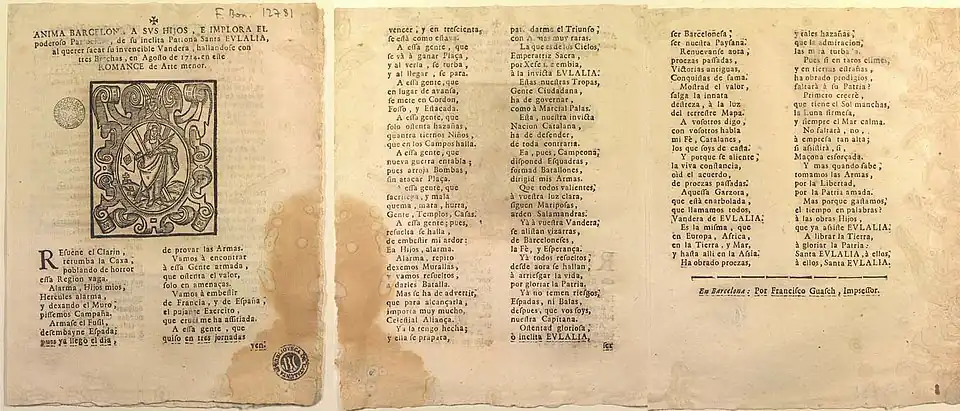 F. Bon. 12781
ANIMA BARCELONA A SVS HIJOS, E IMPLORA EL
poderoso de su inclita Patrona Santa EVLALIA,
al querer sacar su invencible Vandera, hallandose con
tres Brechas, en Agosto de 1714. en este
ROMANCE de Arte menor.
REsuene el Clarin,
retumba la Caxa,
poblando de horror
essa Region vaga.
Alarma, Hijos mios,
Hercules alarma,
y dexando el Muro,
pissemos Campaña.
Armase el Fusil,
desembayne Espada;
pues ya llegò el dia,
de provar las Armas.
Vamos à encontrar
à essa Gente armada,
que ostenta el valor,
solo en amenaças.
Vamos à embestir
de Francia, y de España,
el pujante Exercito,
que cruel me ha assitiada.
A essa gente, que
quiso en tres jornadas
ven-
vencer, y en trescientas
se està como estava.
A essa gente, que
se và à ganar Plaça,
y al verla, se turba,
y al llegar, se para.
A essa gente, que
en lugar de avansa,
se mete en Cordon,
Fosso, y Estacada.
A essa gente, que
solo ostenta hazañas,
quantra tiernos Niños,
que en los Campos halla.
A essa gente, que
nueva guerra entabla;
pues atroja Bombas,
sin atacar Plaça.
A essa gente, que
sacrilega, y mala
quema, mata, hurra,
Gente, Templos, Casas.
A essa gente; pues,
resuelta se halla,
de embestir mi ardor:
Ea Hijos, alarma.
Alarma, repito
dexemos Murallas,
y vamos resueltos,
a darles Batalla.
Mas se ha de advertir,
que para alcançarla,
importa muy mucho,
Celestial Aliança.
Ya la tengo hecha;
y ella se prepara,
para darme el Triunfo,
con Armas muy raras.
La que es de los Cielos,
Emperatriz Sacra,
por Xefe la embia,
à la invicta EVLALIA.
Estas nuestras Tropas,
Gente Ciudadana,
ha de governar,
como à Marcial Palas.
Esta, nuestra invicta
Nacion Catalana,
ha de defender,
de toda contraria.
Ea, pues, Campeona,
disponed Esquadras,
formad Batallones,
dirigid mis Armas.
Que todos valientes,
à vuestra luz clara,
siguen Mariposas,
arden Salamandras.
Yà à vuestra Vandera,
se alistan vizarras,
de Barceloneses,
la Fè, y Esperança.
Yà todos resueltos,
desde aora se hallan,
à arriesgar la vida,
por gloriar la Patria.
Yà no temen riesgos,
Espadas, ni Balas,
despues, que vos soys,
nuestra Capitana.
Ostentad gloriosa,
ò inclita EVLALIA,
ser
ser Barcelonesa,
ser nuestra Paysana.
Renuevanse aora,
proezas passadas,
Victorias antiguas,
Conquistas de fama.
Mostrad el valor,
salga la innata
destreza, à la luz
del terrestre Mapa.
A vosotros digo,
con vosotros habla
mi Fè, Catalanes,
los que soys de casta.
Y porque se aliente,
la viva constancia,
oìd el acuerdo,
de proezas passadas.
Aquessa Garzota,
que està enarbolada,
que llamamos todos,
Vandera de EVLALIA.
Es la misma, que
en Europa, Africa,
en la Tierra, y Mar,
y hasta allì en la Asia.
Ha obrado proezas,
y tales hazañas,
que la admiracion,
las mira turbada.
Pues si en raros climes,
y en tierras estrañas,
ha obrado prodigios,
faltarà à su Patria?
Primero creerè,
que tiene el Sol manchas,
la Luna firmesa,
y siempre el Mar calma.
No faltarà, no,
à empresa tan alta;
si assistirà, si,
Maçona esforçada.
Y mas quando sabe,
tomamos las Armas,
por la Libertad,
por la Patria amada.
Mas porque gastamos,
el tiempo en palabras?
à las obras Hijos,
que ya assiste EVLALIA.
A librar la Tierra,
à gloriar la Patria:
Santa EVLALIA, à ellos,
à ellos, Santa EVLALIA.
En Barcelona: Por Francisco Guasch, Impressor.